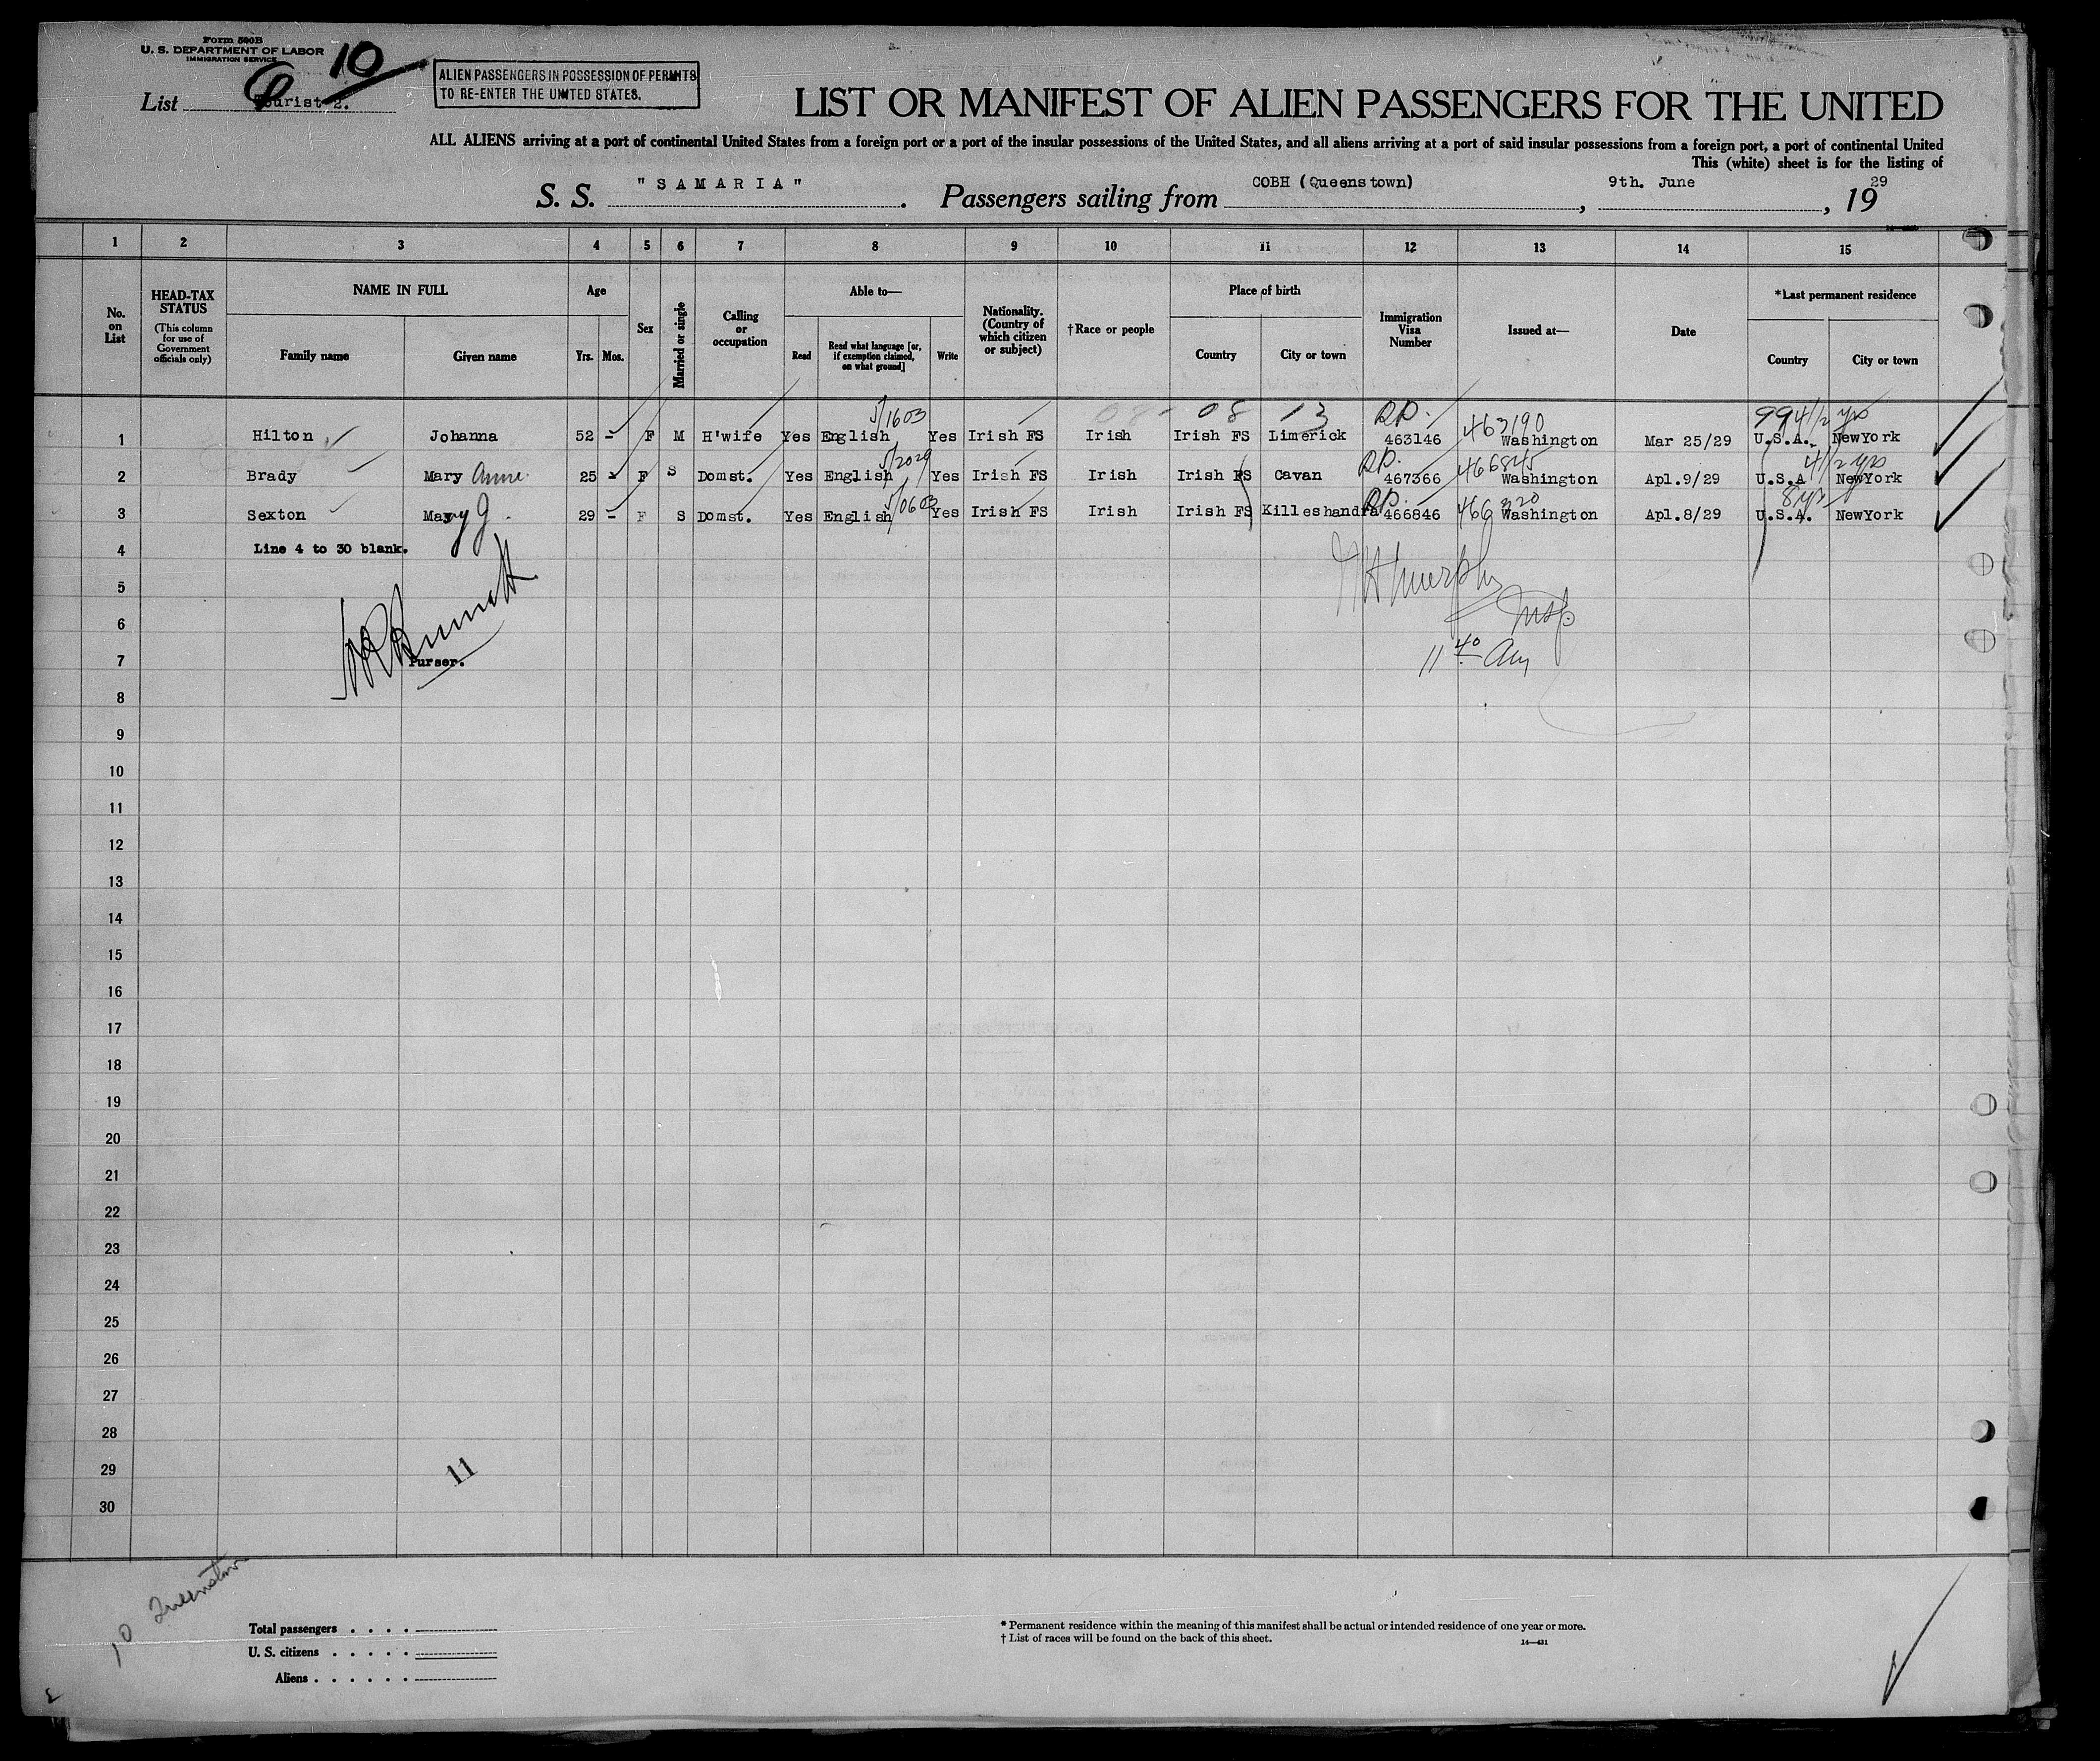 Form 500B
U. S. DEPARTMENT OF LABOR
IMMIGRATION SERVICE
10
List Tourist 2.
ALIEN PASSENGERS IN POSSESSION OF PERMITS
TO RE-ENTER THE UNITED STATES.
LIST OR MANIFEST OF ALIEN PASSENGERS FOR THE UNITED
ALL ALIENS arriving at a port of continental United States from a foreign port or a port of the insular possessions of the United States, and all aliens arriving at a port of said insular possessions from a foreign port, a port of continental United
This (white) sheet is for the listing of
S. S. "SAMARIA". Passengers sailing from COBH (Queenstown), 9th. June, 1929
1 2 3 4 5 6 7 8 9 10 11 12 13 14 15
No. on List
HEAD-TAX STATUS
(This column for use of Government officials only)
NAME IN FULL
Family name Given name
Age
Yrs. Mos.
Sex
Married or single
Calling or occupation
Able to—
Read
Read what language [or, if exemption claimed, on what ground]
Write
Nationality. (Country of which citizen or subject)
†Race or people
Place of birth
Country City or town
Immigration Visa Number
Issued at—
Date
*Last permanent residence
Country City or town
5/1603 08 - 08 13 RP. 463190 99 4 1/2 yrs
1 Hilton Johanna 52 - F M H'wife Yes English Yes Irish FS Irish Irish FS Limerick 463146 Washington Mar 25/29 U.S.A. NewYork
5/2029 RP. 466845 4 1/2 yrs
2 Brady Mary Anne 25 - F S Domst. Yes English Yes Irish FS Irish Irish FS Cavan 467366 Washington Apl.9/29 U.S.A NewYork
5/0603 RP. 8 yrs
3 Sexton Mary J. 29 - F S Domst. Yes English Yes Irish FS Irish Irish FS Killeshandra 466846 Washington Apl.8/29 U.S.A. NewYork
4 Line 4 to 30 blank.
5
Murphy
6
Insp
7 Purser.
11 40 Am
8
9
10
11
12
13
14
15
16
17
18
19
20
21
22
23
24
25
26
27
28
29
11
30
10 Queenstown
Total passengers . . . .
U. S. citizens . . . . .
Aliens . . . . . .
* Permanent residence within the meaning of this manifest shall be actual or intended residence of one year or more.
† List of races will be found on the back of this sheet.
14—431